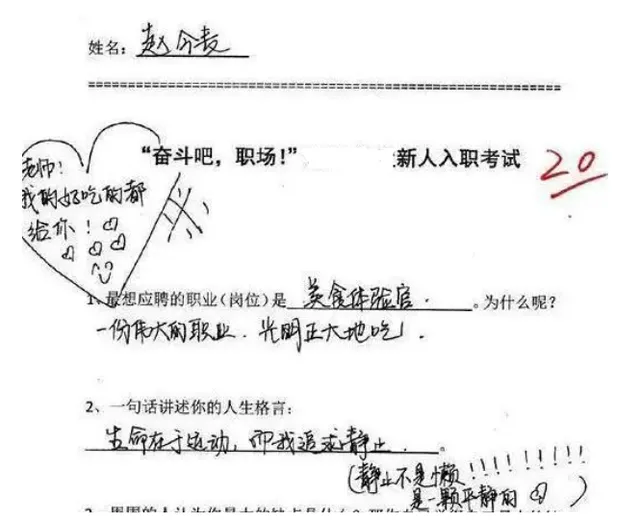 姓名：赵今麦
"奋斗吧，职场！" 新人入职考试 20
老师！
我的好吃的都
给你！
1、最想应聘的职业（岗位）是 美食体验官. 。为什么呢？
一份伟大的职业. 光明正大地吃！
2、一句话讲述你的人生格言：
生命在于运动，而我追求静止. 。
（静止不是懒！！！！！！！！
是一颗平静的 ）